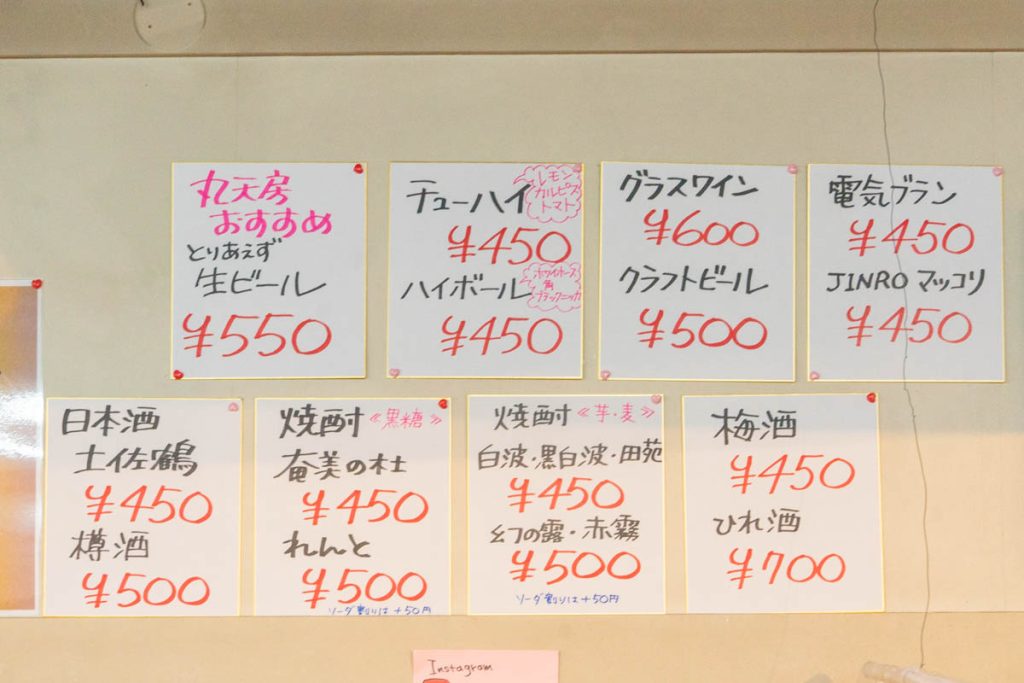 丸天房
おすすめ
とりあえず
生ビール
¥550
チューハイ
レモン
カルピス
トマト
¥450
ハイボール
ホワイトホース
角
ブラックニッカ
¥450
グラスワイン
¥600
クラフトビール
¥500
電気ブラン
¥450
JINRO マッコリ
¥450
日本酒
土佐鶴
¥450
樽酒
¥500
焼酎《黒糖》
奄美の杜
¥450
れんと
¥500
ソーダ割りは+50円
焼酎《芋・麦》
白波・黒白波・田苑
¥450
幻の露・赤霧
¥500
ソーダ割りは+50円
梅酒
¥450
ひれ酒
¥700
Instagram